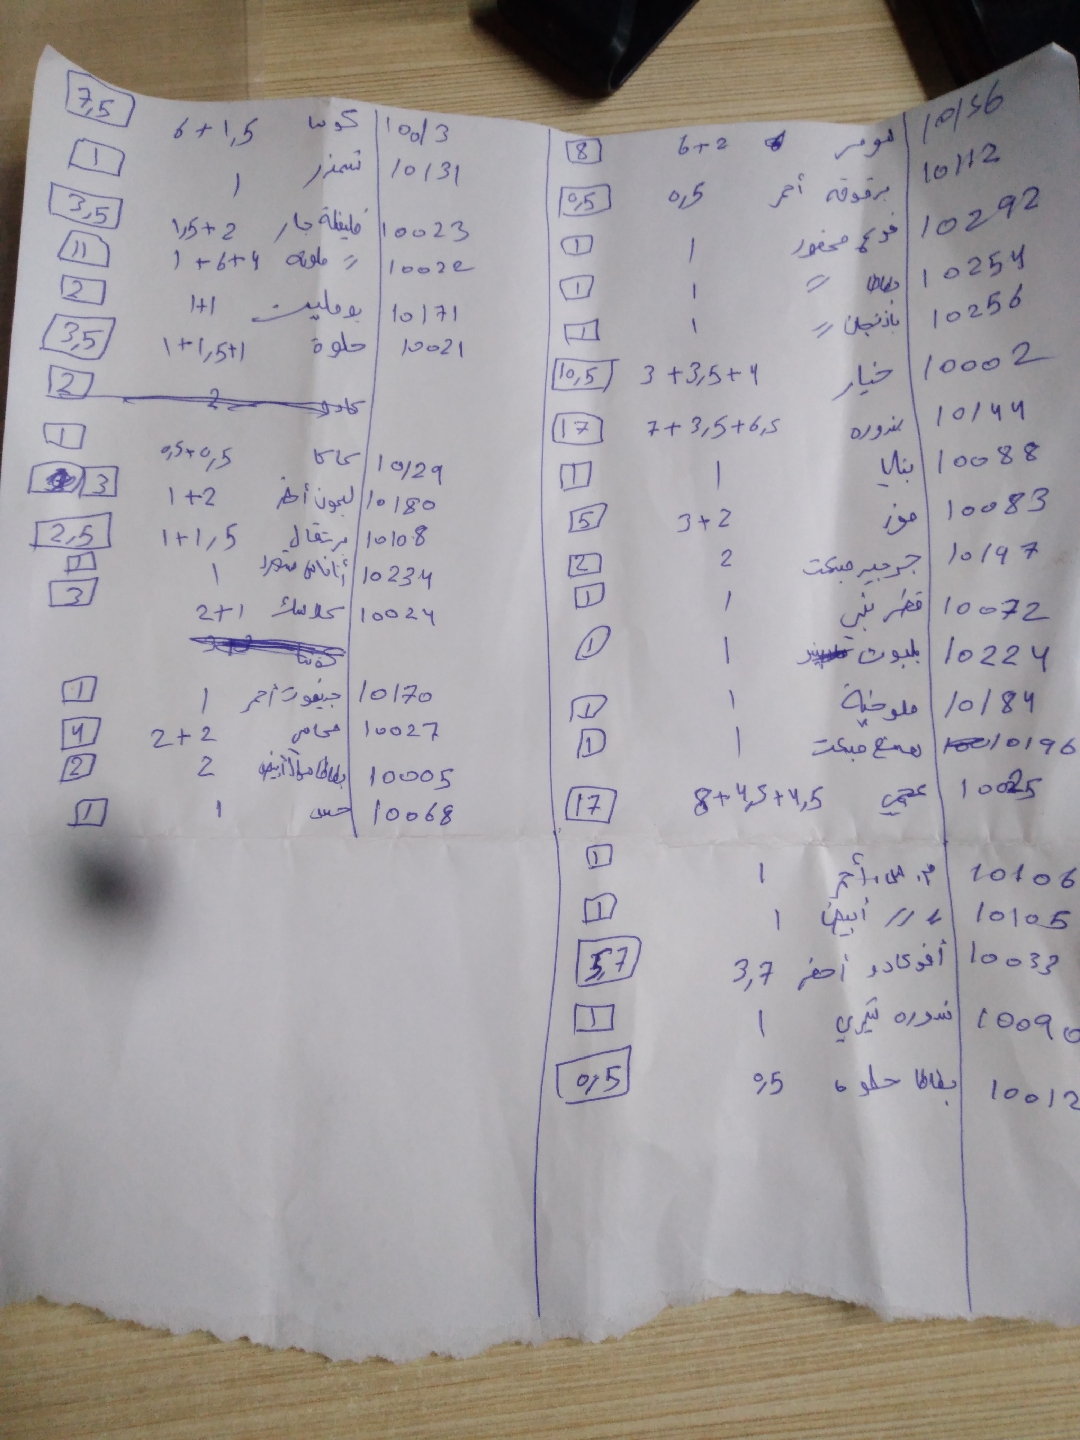 10136 بومر 6+2 8
10112 برقوقه أحمر 0,5 0,5
10292 قرع محفور 1 1
10254 بطاطا // 1 1
10256 باذنجان // 1 1
10002 خيار 3+3,5+4 10,5
10144 بندوره 7+3,5+6,5 17
10088 1 1
10083 موز 3+2 5
10197 جرجير مبكت 2 2
10072 فطر بني 1 1
10224 بلبوت 1 1
10184 ملوخية 1 1
10196 مبكت 1 1
10025 عجمي 8+4,5+4,5 17
10106 أحمر 1 1
10105 // // أبيض 1 1
10033 أفوكادو أصفر 3,7 3,7
10090 بندوره تيري 1 1
10012 بطاطا حلوه 0,5 0,5
10013 كوسا 6+1,5 7,5
10131 1 1
10023 فليفلة حار 1,5+2 3,5
10022 // ملونه 1+6+4 11
10171 بومليت 1+1 2
10021 حلوة 1+1,5+1 3,5
2 2
10129 كاكا 0,5+0,5 1
10180 ليمون أخضر 1+2 3
10108 برتقال 1+1,5 2,5
10234 أناناس 1 1
10024 كلاسك 2+1 3
كوسا
10170 جريفوت أحمر 1 1
10027 محامي 2+2 4
10005 بطاطا أبيض 2 2
10068 خس 1 1